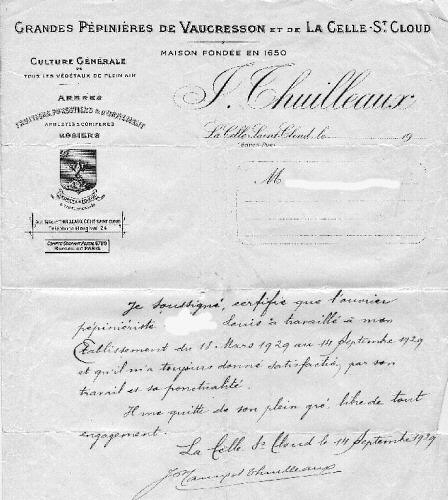 GRANDES PÉPINIÈRES DE VAUCRESSON ET DE LA CELLE-ST CLOUD
MAISON FONDÉE EN 1650
CULTURE GÉNÉRALE
DE
TOUS LES VÉGÉTAUX DE PLEIN AIR
ARBRES
FRUITIERS, FORESTIERS & D'ORNEMENT
ARBUSTES & CONIFÈRES
ROSIERS
J. Thuilleaux
La Celle-Saint-Cloud, le 19
M
Téléphone 24
COMPTE COURANT POSTAL
BUREAU DE PARIS
Je soussigné, certifie que l'ouvrier
pépiniériste Louis a travaillé à mon
Etablissement du 18 Mars 1929 au 14 Septembre 1929
et qu'il m'a toujours donné satisfaction, par son
travail et sa ponctualité.
Il me quitte de son plein gré, libre de tout
engagement.
La Celle St Cloud le 14 Septembre 1929
Thuilleaux